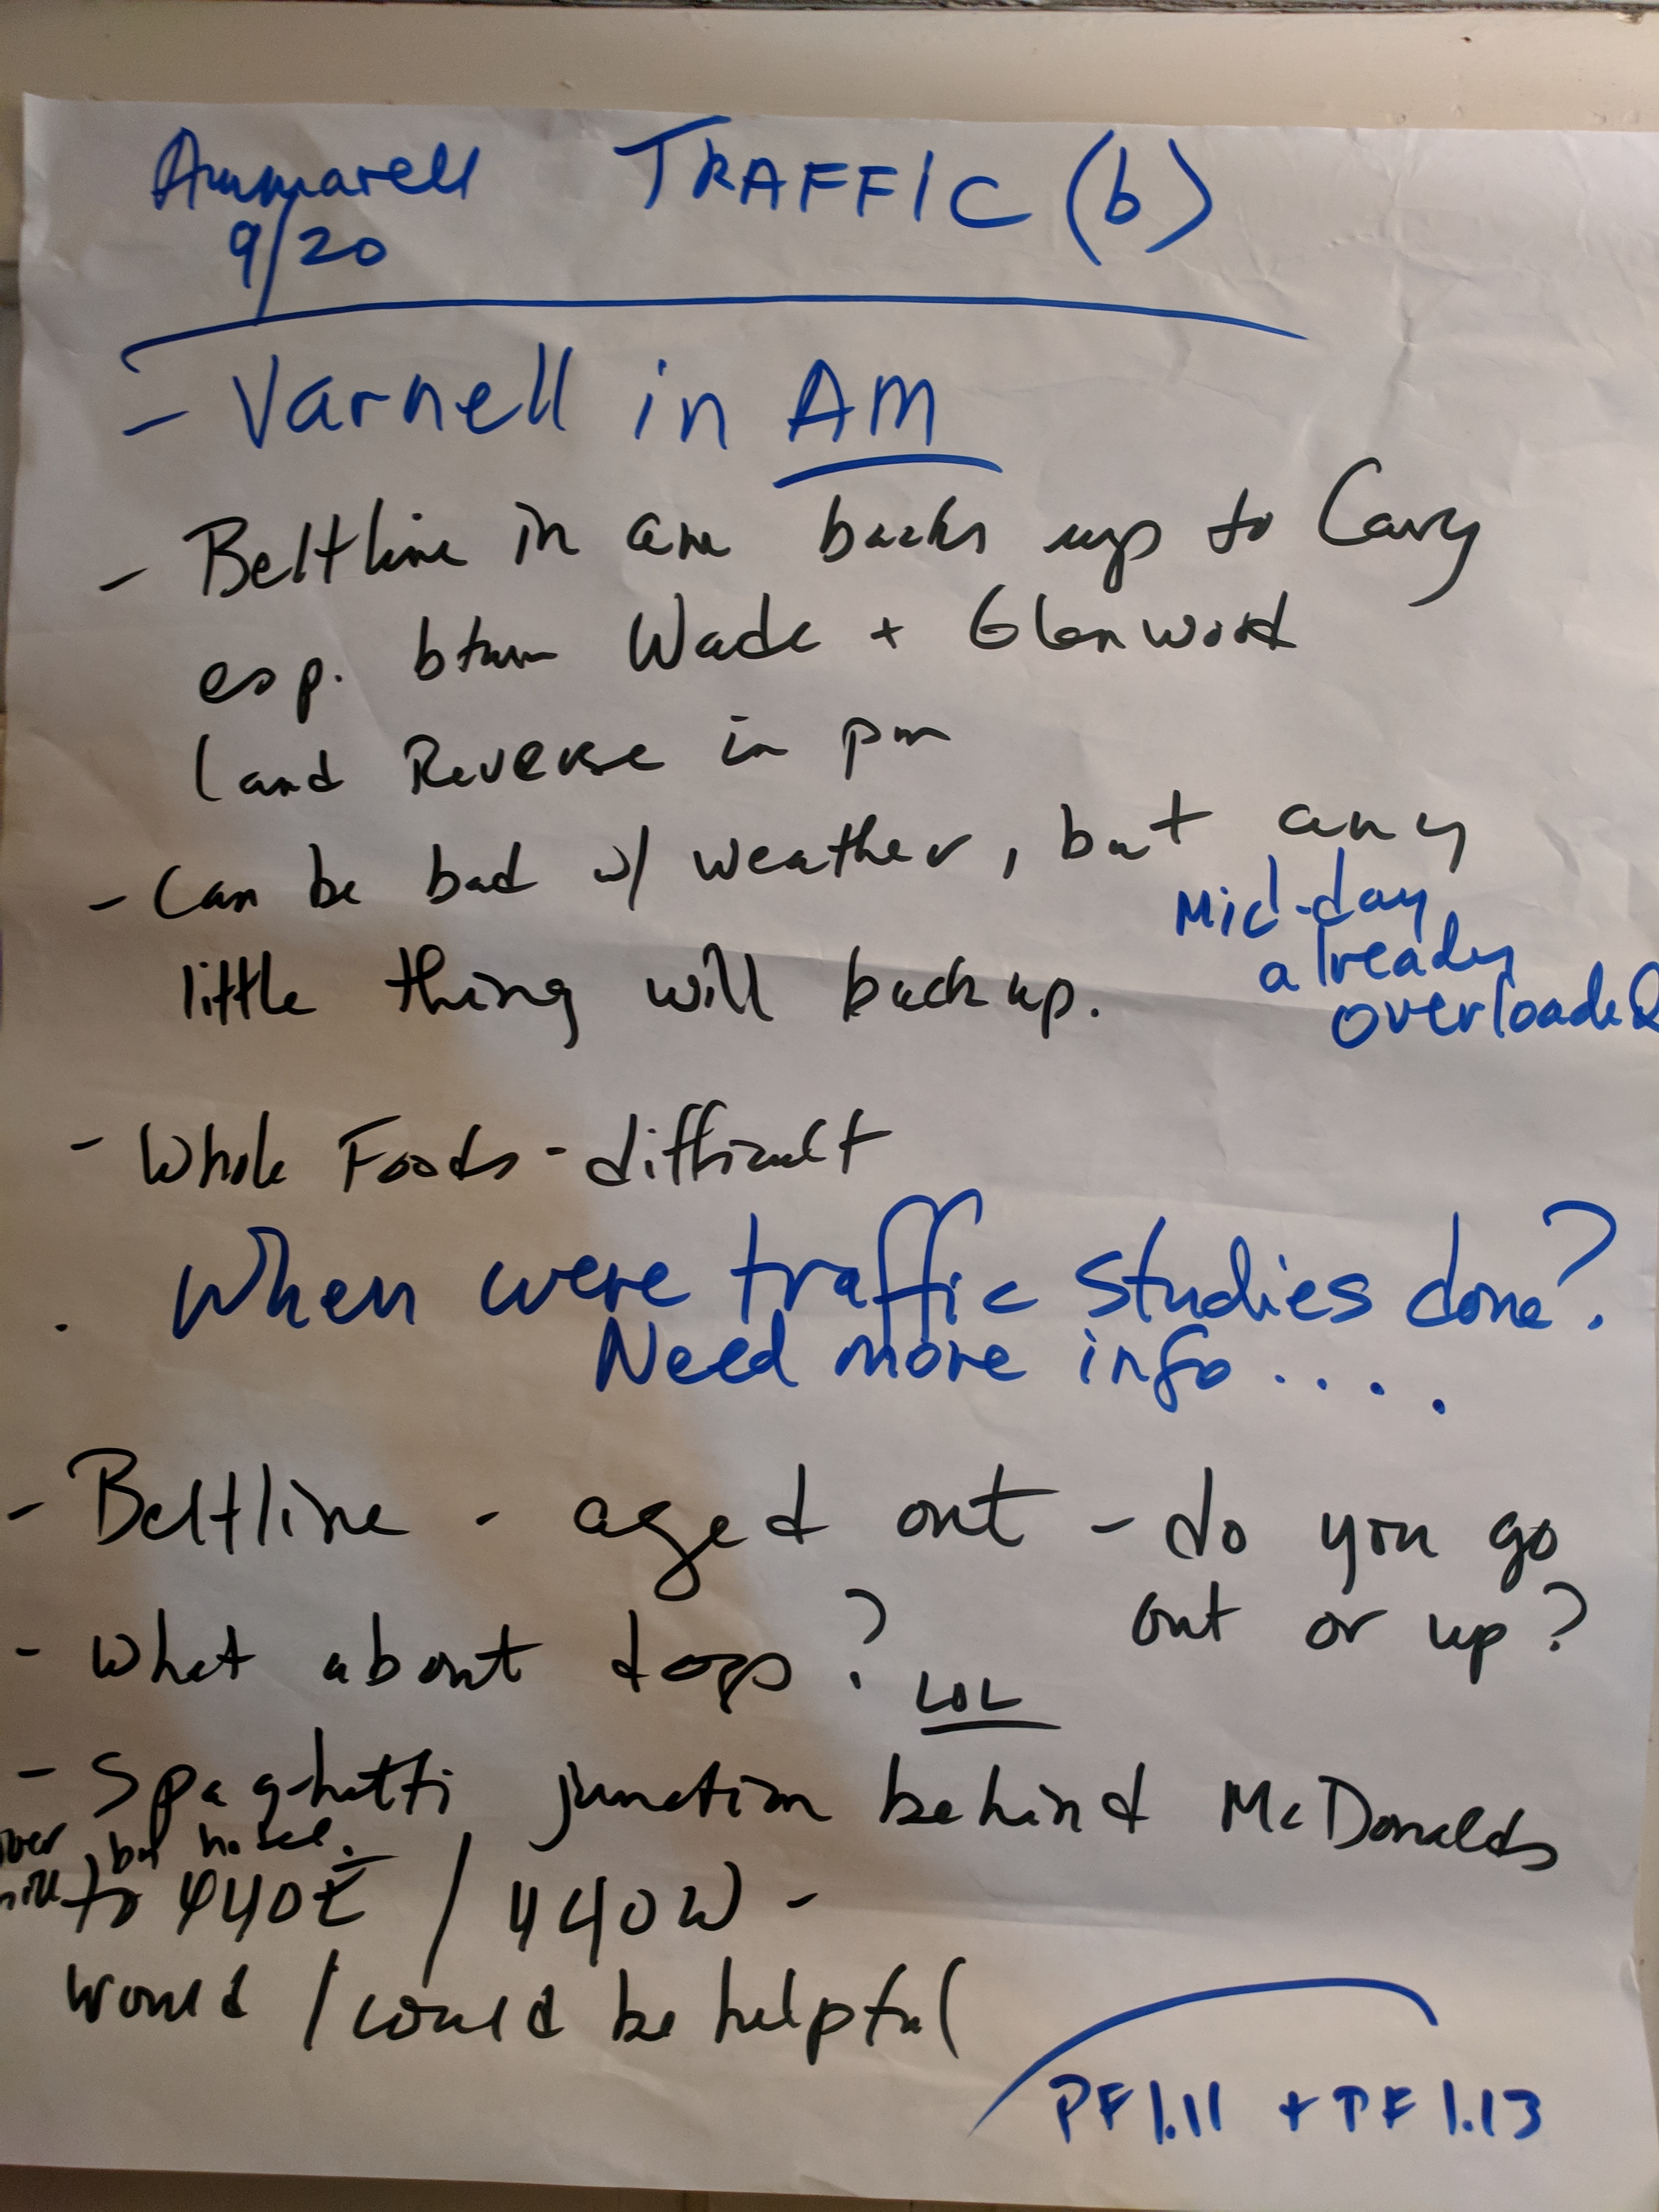 Ammarell TRAFFIC (b)
9/20
- Varnell in AM
- Beltline in am backs up to Cary
esp. btwn Wade + Glenwood
(and Reverse in pm
- Can be bad w/ weather, but any
little thing will back up.
Mid-day
already
overloaded
- Whole Foods - difficult
. When were traffic studies done?
Need more info....
- Beltline - aged out - do you go
out or up?
- What about dogs? LOL
- Spaghetti junction behind McDonalds
to 440E / 440W -
would / could be helpful
PF 1.11 + PF 1.13